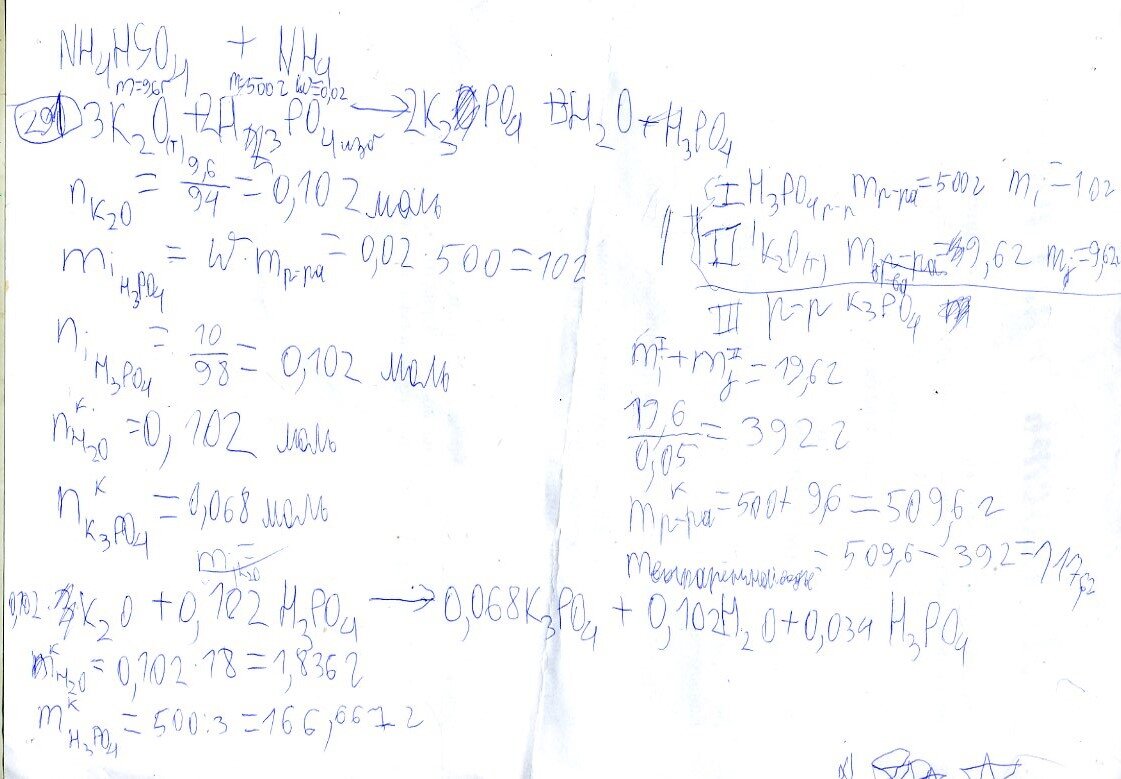 NH4HSO4 + NH4
m=9,6г m=500г W=0,02
291 3K2O(т) + 2H3PO4 изб → 2K3PO4 + 3H2O + H3PO4
nK2O = 9,6/94 = 0,102 моль
mi H3PO4 = W · mр-ра = 0,02 · 500 = 10г
ni H3PO4 = 10/98 = 0,102 моль
nкH2O = 0,102 моль
nкK3PO4 = 0,068 моль
0,102 K2O + 0,102 H3PO4 → 0,068K3PO4 + 0,102H2O + 0,034 H3PO4
mкH2O = 0,102 · 18 = 1,836г
mкH3PO4 = 500:3 = 166,667г
I H3PO4 р-р mр-ра = 500г mi = 10г
II K2O(т) m = 9,6г mд = 9,6г
III р-р K3PO4
miI + mдII = 19,6г
19,6/0,05 = 392 г
mкр-ра = 500 + 9,6 = 509,6 г
= 509,6 - 392 = 117,6г